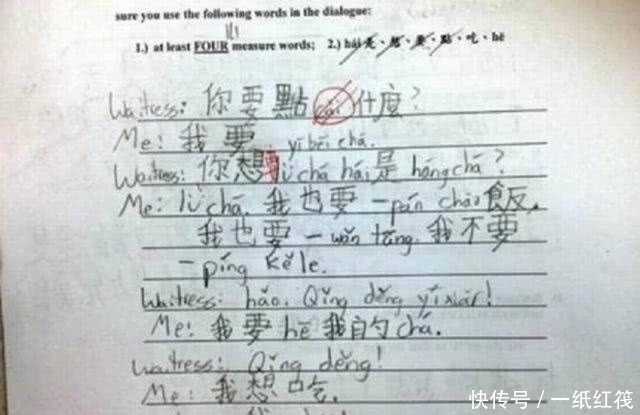 sure you use the following words in the dialogue:
1.) at least FOUR measure words; 2.) hái 是、想、要、點、吃、hē
Waitress: 你要點 cài 什麼?
Me: 我要 yì bēi chá.
Waitress: 你想要 lǜ chá hái 是 hóng chá?
Me: lǜ chá. 我也要一 pán chǎo 飯.
我也要一 wǎn tāng. 我不要
一 píng kě lè.
Waitress: hǎo. Qǐng děng yí xiàr!
Me: 我要 hē 我的 chá.
Waitress: Qǐng děng!
Me: 我想吃.
快传号/一纸红筏